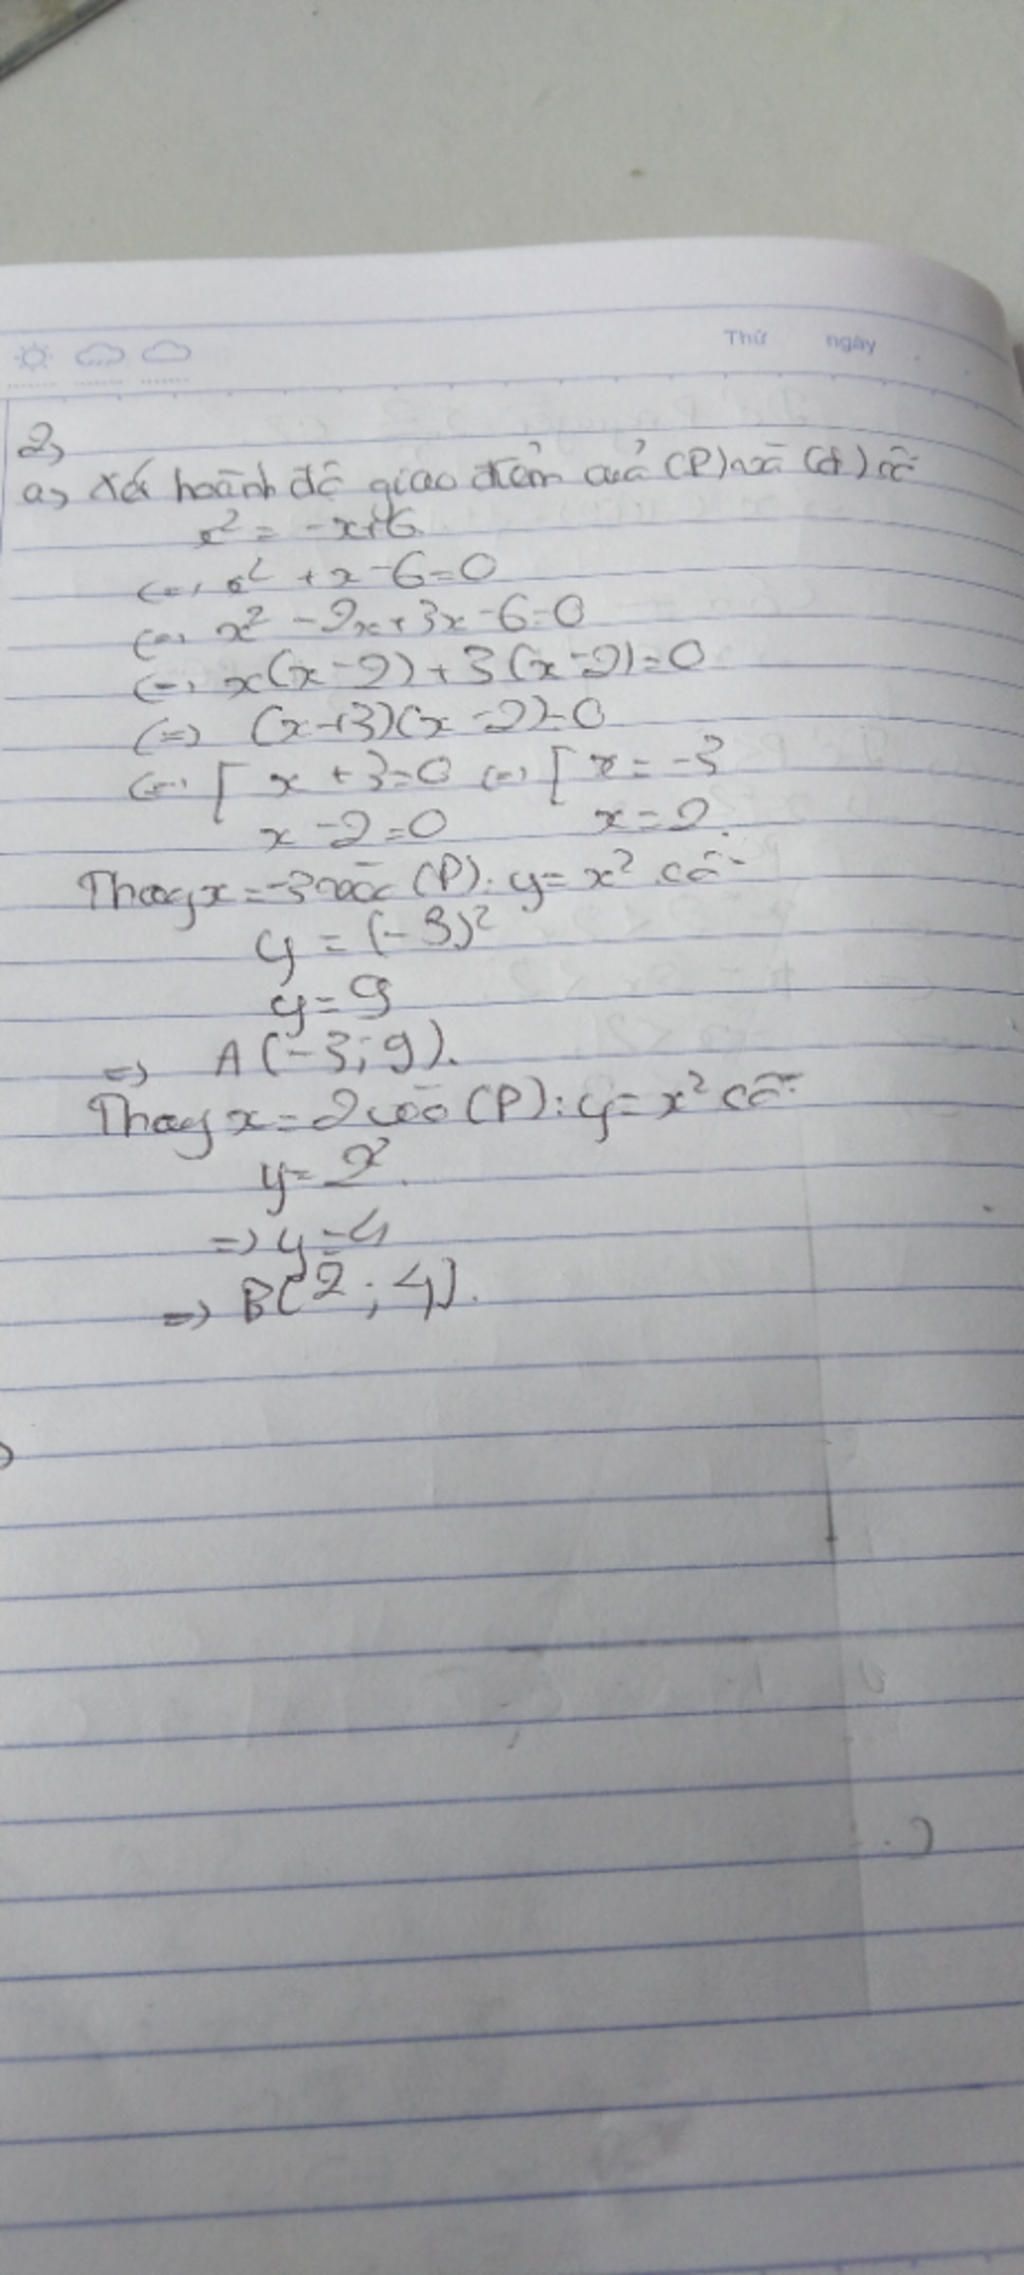 Thứ ngày
2,
a, Xét hoành độ giao điểm của (P) và (d) có
x² = -x+6
<=> x² + x - 6 = 0
<=> x² - 2x + 3x - 6 = 0
<=> x(x - 2) + 3(x - 2) = 0
<=> (x+3)(x - 2) = 0
<=> [ x + 3 = 0 <=> [ x = -3
x - 2 = 0 x = 2.
Thay x = -3 vào (P): y = x² có
y = (-3)²
y = 9
=> A(-3; 9).
Thay x = 2 vào (P): y = x² có
y = 2².
=> y = 4
=> B(2; 4).